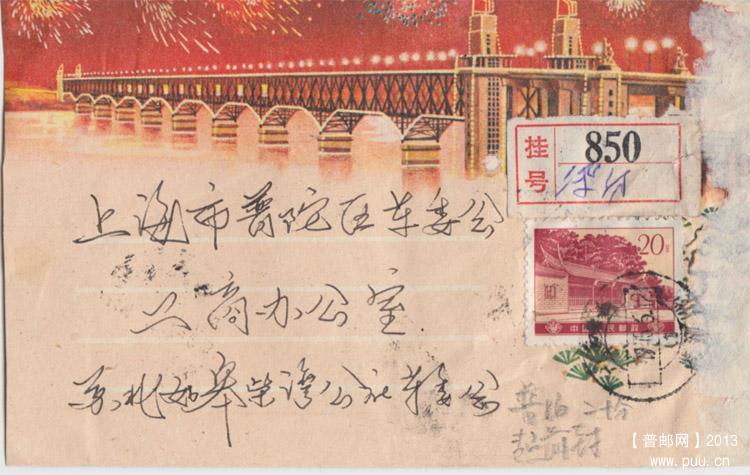 挂号
850
20分
中国人民邮政
上海市普陀区革委会
工商办公室
苏北如皋柴湾公社革委会
【普邮网】2013
www.puu.cn